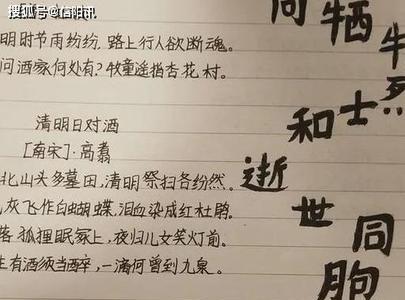 搜狐号@信阳讯
明时节雨纷纷，路上行人欲断魂。
问酒家何处有？牧童遥指杏花村。
清明日对酒
[南宋]·高翥
北山头多墓田，清明祭扫各纷然。
灰飞作白蝴蝶，泪血染成红杜鹃。
落 狐狸眠冢上，夜归儿女笑灯前。
生有酒须当醉，一滴何曾到九泉。
向牺牲
烈士
和逝世
同胞